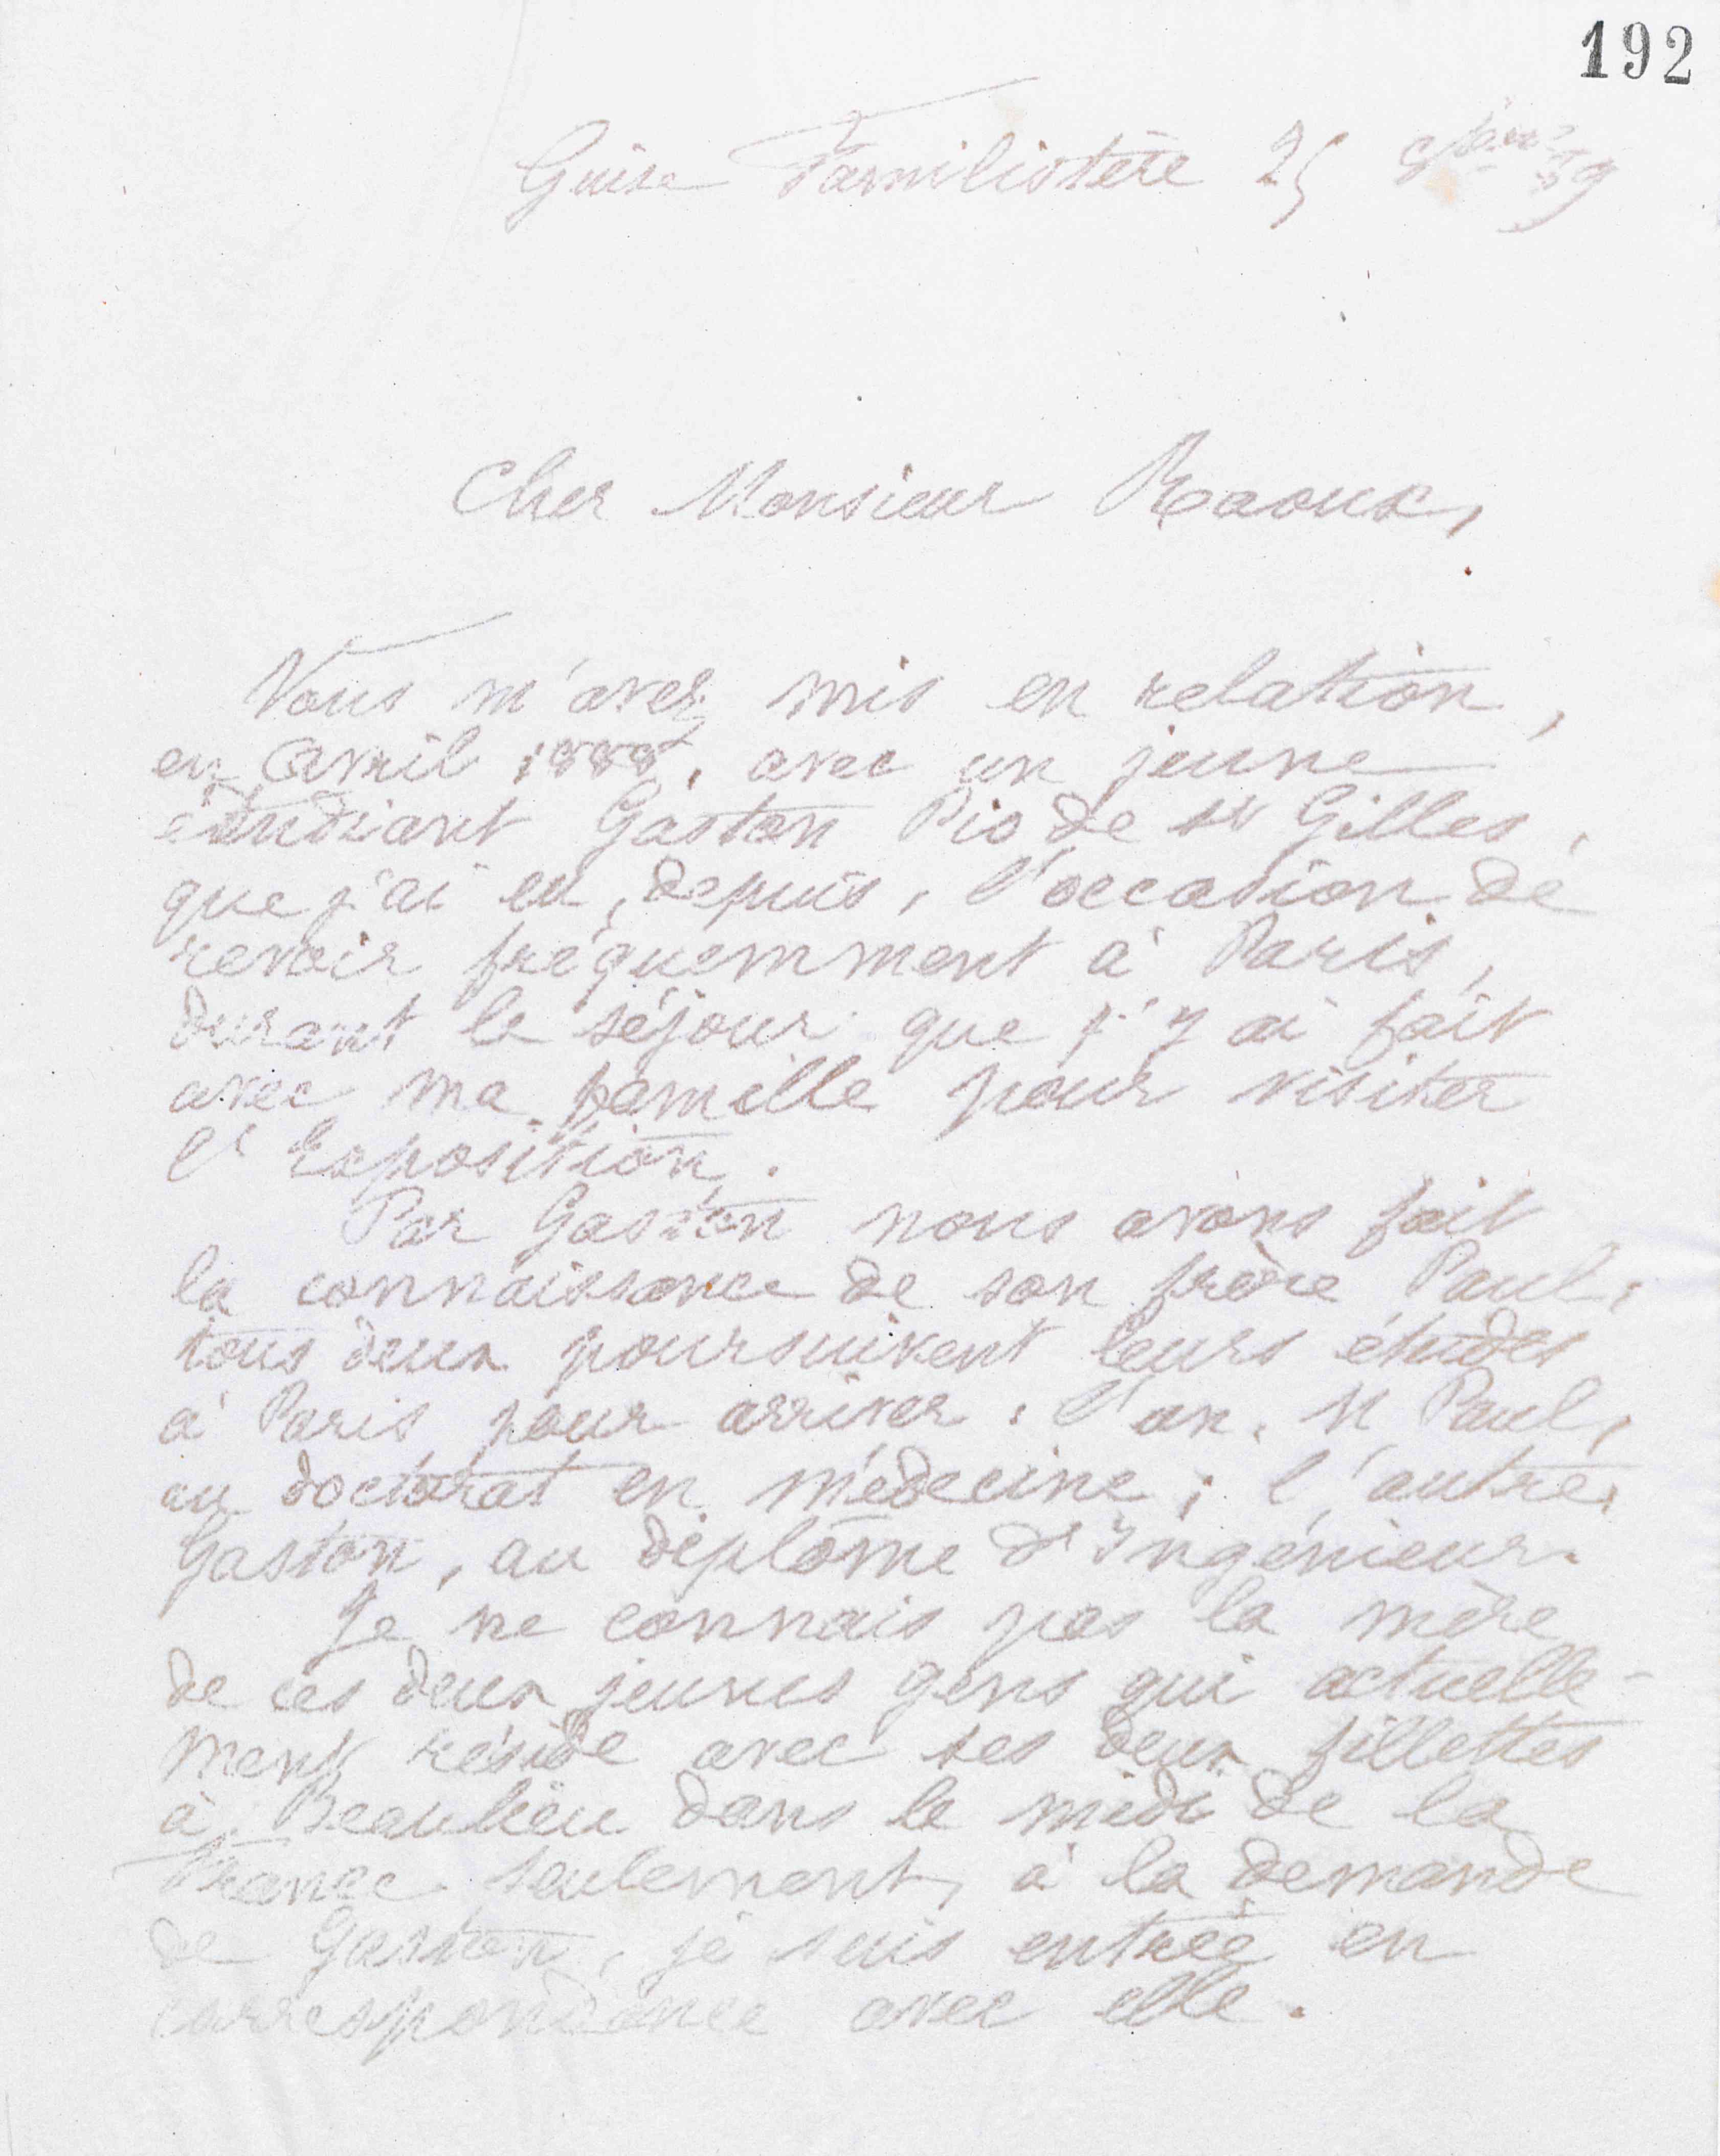 192
Guise Familistère 25 8bre 89
Cher Monsieur Raoux,
Vous m'avez mis en relation,
en Avril 1888, avec un jeune
étudiant Gaston Pio de St Gilles,
que j'ai eu, depuis, l'occasion de
revoir fréquemment à Paris,
durant le séjour que j'y ai fait
avec ma famille pour visiter
l'Exposition.
Par Gaston nous avons fait
la connaissance de son frère Paul,
tous deux poursuivent leurs études
à Paris pour arriver : l'un, M Paul,
au doctorat en médecine ; l'autre,
Gaston, au diplôme d'Ingénieur.
Je ne connais pas la mère
de ces deux jeunes gens qui actuelle-
ment réside avec ses deux fillettes
à Beaulieu dans le midi de la
France seulement, à la demande
de Gaston, je suis entrée en
correspondance avec elle.